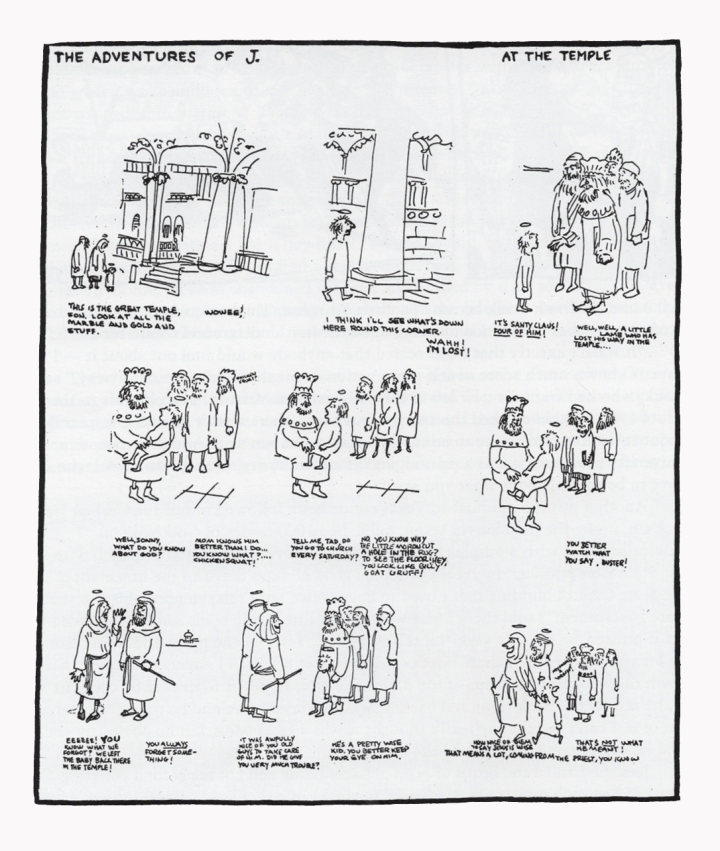 THE ADVENTURES OF J.
AT THE TEMPLE
THIS IS THE GREAT TEMPLE,
SON. LOOK AT ALL THE
MARBLE AND GOLD AND
STUFF.
WOWEE!
I THINK I'LL SEE WHAT'S DOWN
HERE ROUND THIS CORNER.
WAHH!
I'M LOST!
IT'S SANTY CLAUS!
FOUR OF HIM!
WELL, WELL, A LITTLE
LAMB WHO HAS
LOST HIS WAY IN THE
TEMPLE....
WELL, SONNY,
WHAT DO YOU KNOW
ABOUT GOD?
MOM KNOWS HIM
BETTER THAN I DO...
YOU KNOW WHAT ?....
CHICKENSQUAT!
TELL ME, TAD, DO
YOU GO TO CHURCH
EVERY SATURDAY?
NO. YOU KNOW WHY
THE LITTLE MORON CUT
A HOLE IN THE RUG?
TO SEE THE FLOOR! HEY,
YOU LOOK LIKE BILLY
GOAT GRUFF!
YOU BETTER
WATCH WHAT
YOU SAY, BUSTER!
EEEEEE! YOU
KNOW WHAT WE
FORGOT? WE LEFT
THE BABY BACK THERE
IN THE TEMPLE!
YOU ALWAYS
FORGET SOME-
THING!
IT WAS AWFULLY
NICE OF YOU OLD
GUYS TO TAKE CARE
OF HIM. DID HE GIVE
YOU VERY MUCH TROUBLE?
HE'S A PRETTY WISE
KID. YOU BETTER KEEP
YOUR EYE ON HIM.
HOW NICE OF THEM
TO SAY JESUS IS WISE
THAT MEANS A LOT, COMING FROM THE PRIEST, YOU KNOW
THAT'S NOT WHAT
HE MEANT!